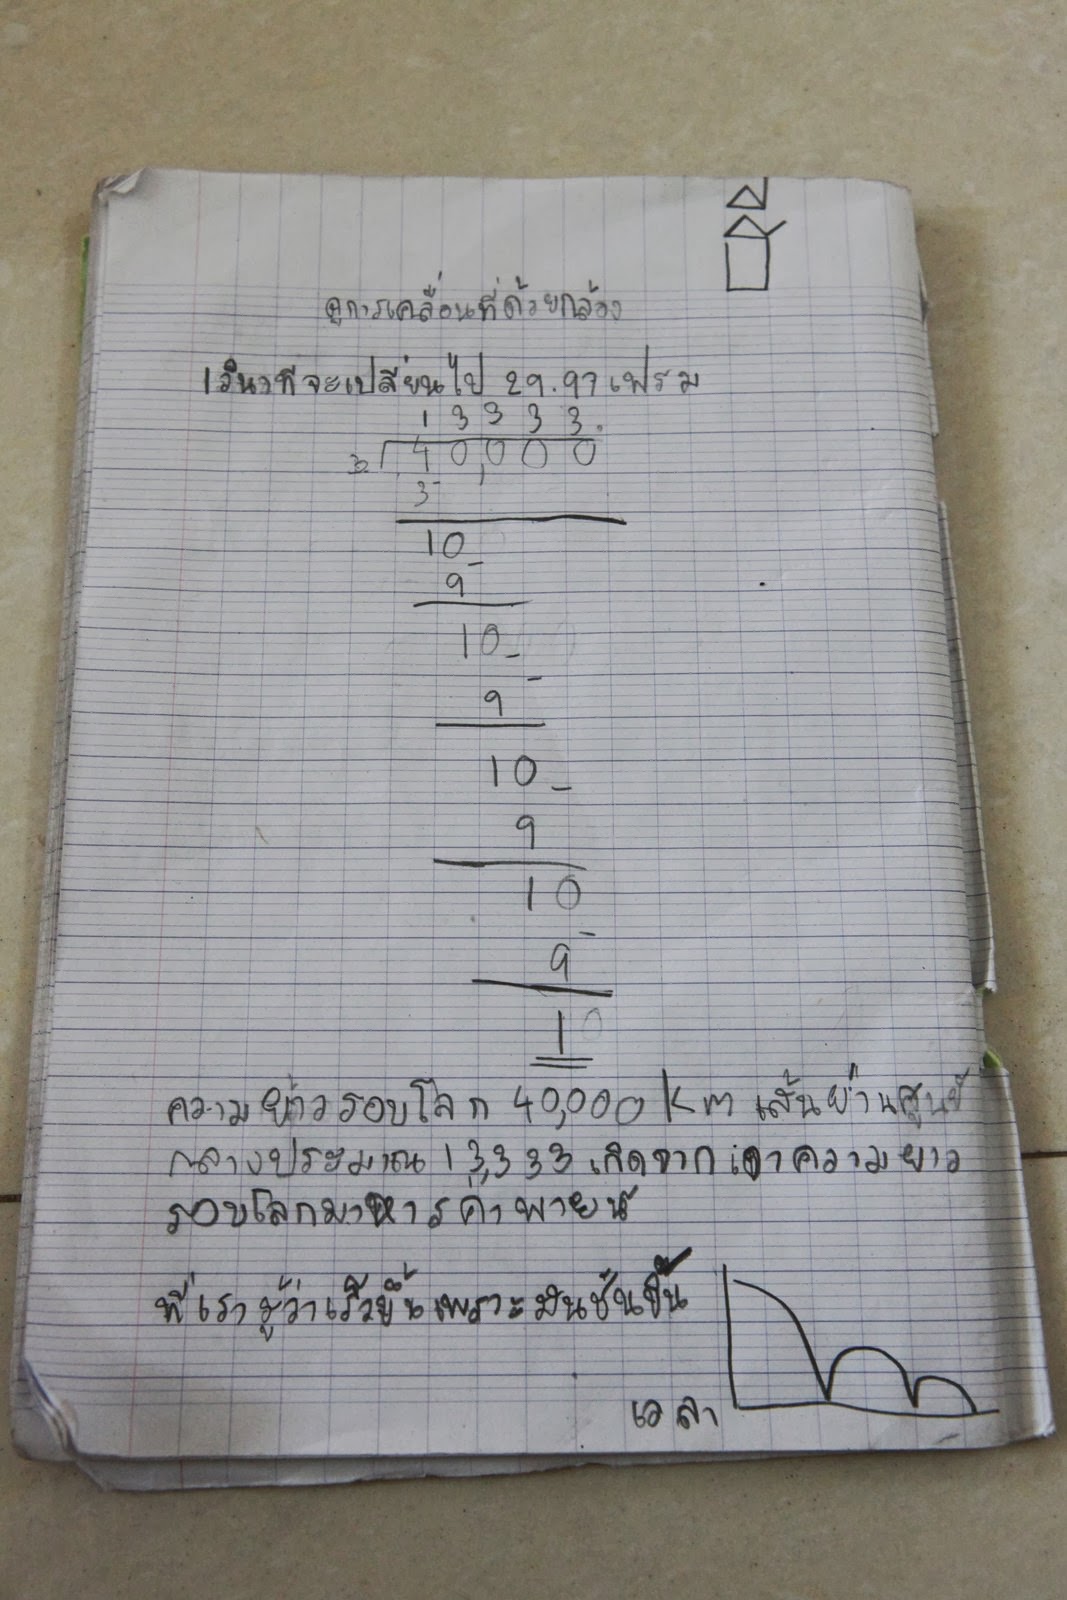 ดูการเคลื่อนที่ด้วยกล้อง
1วินาทีจะเปลี่ยนไป 29.97 เฟรม
13333.
40,000
3
10
9
10
9
10
9
10
9
10
ความยาวรอบโลก 40,000 km เส้นผ่านศูนย์
กลางประมาณ 13,333 เกิดจากเอาความยาว
รอบโลกมาหารค่าพายน์
ที่เรารู้ว่าเร็วขึ้นเพราะมันชันขึ้น
เวลา